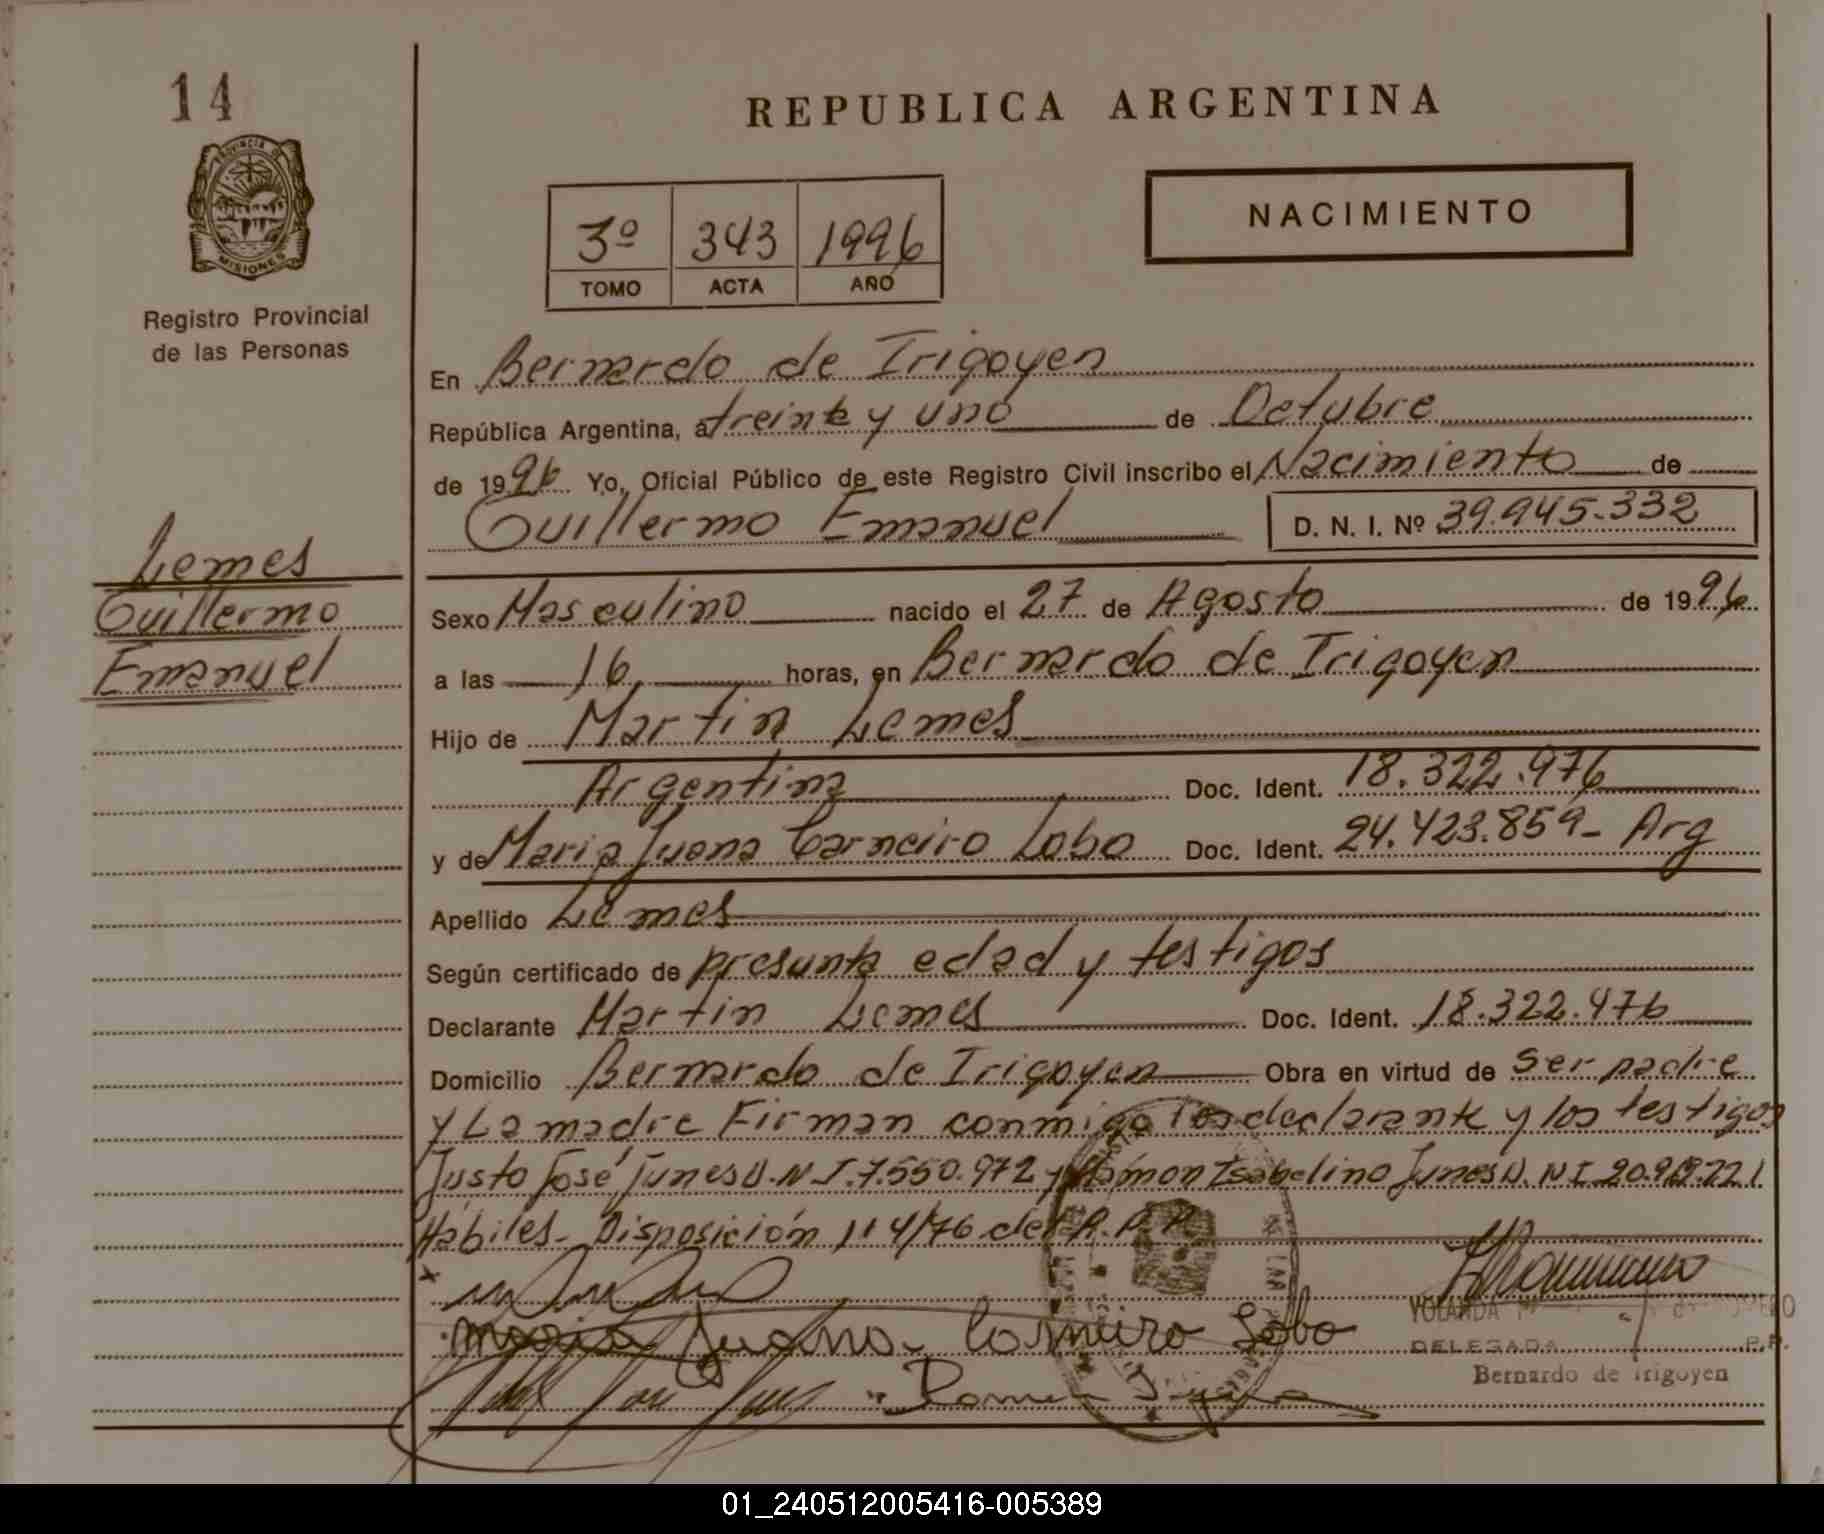 14
PROVINCIA DE
MISIONES
Registro Provincial
de las Personas
REPUBLICA ARGENTINA
3º 343 1996
TOMO ACTA AÑO
NACIMIENTO
En Bernardo de Irigoyen
República Argentina, a treinta y uno de Octubre
de 1996 Yo, Oficial Público de este Registro Civil inscribo el Nacimiento de
Guillermo Emanuel D. N. I. Nº 39.945.332
Lemes
Guillermo
Emanuel
Sexo Masculino nacido el 27 de Agosto de 1996
a las 16 horas, en Bernardo de Irigoyen
Hijo de Martin Lemes
Argentina Doc. Ident. 18.322.976
y de Maria Juana Carneiro Lobo Doc. Ident. 24.423.859- Arg
Apellido Lemes
Según certificado de presunta edad y testigos
Declarante Martin Lemes Doc. Ident. 18.322.476
Domicilio Bernardo de Irigoyen Obra en virtud de ser padre
y La madre Firman conmigo declarante y los testigos
Justo José Junes D.N.I. 7.550.972 y Ramon Isabelino Junes D.N.I
Hábiles- Disposición 114/76 del R.P.P.
maria Juana Carneiro Lobo
YOLANDA
DELEGADA R.P.
Bernardo de Irigoyen
01_240512005416-005389